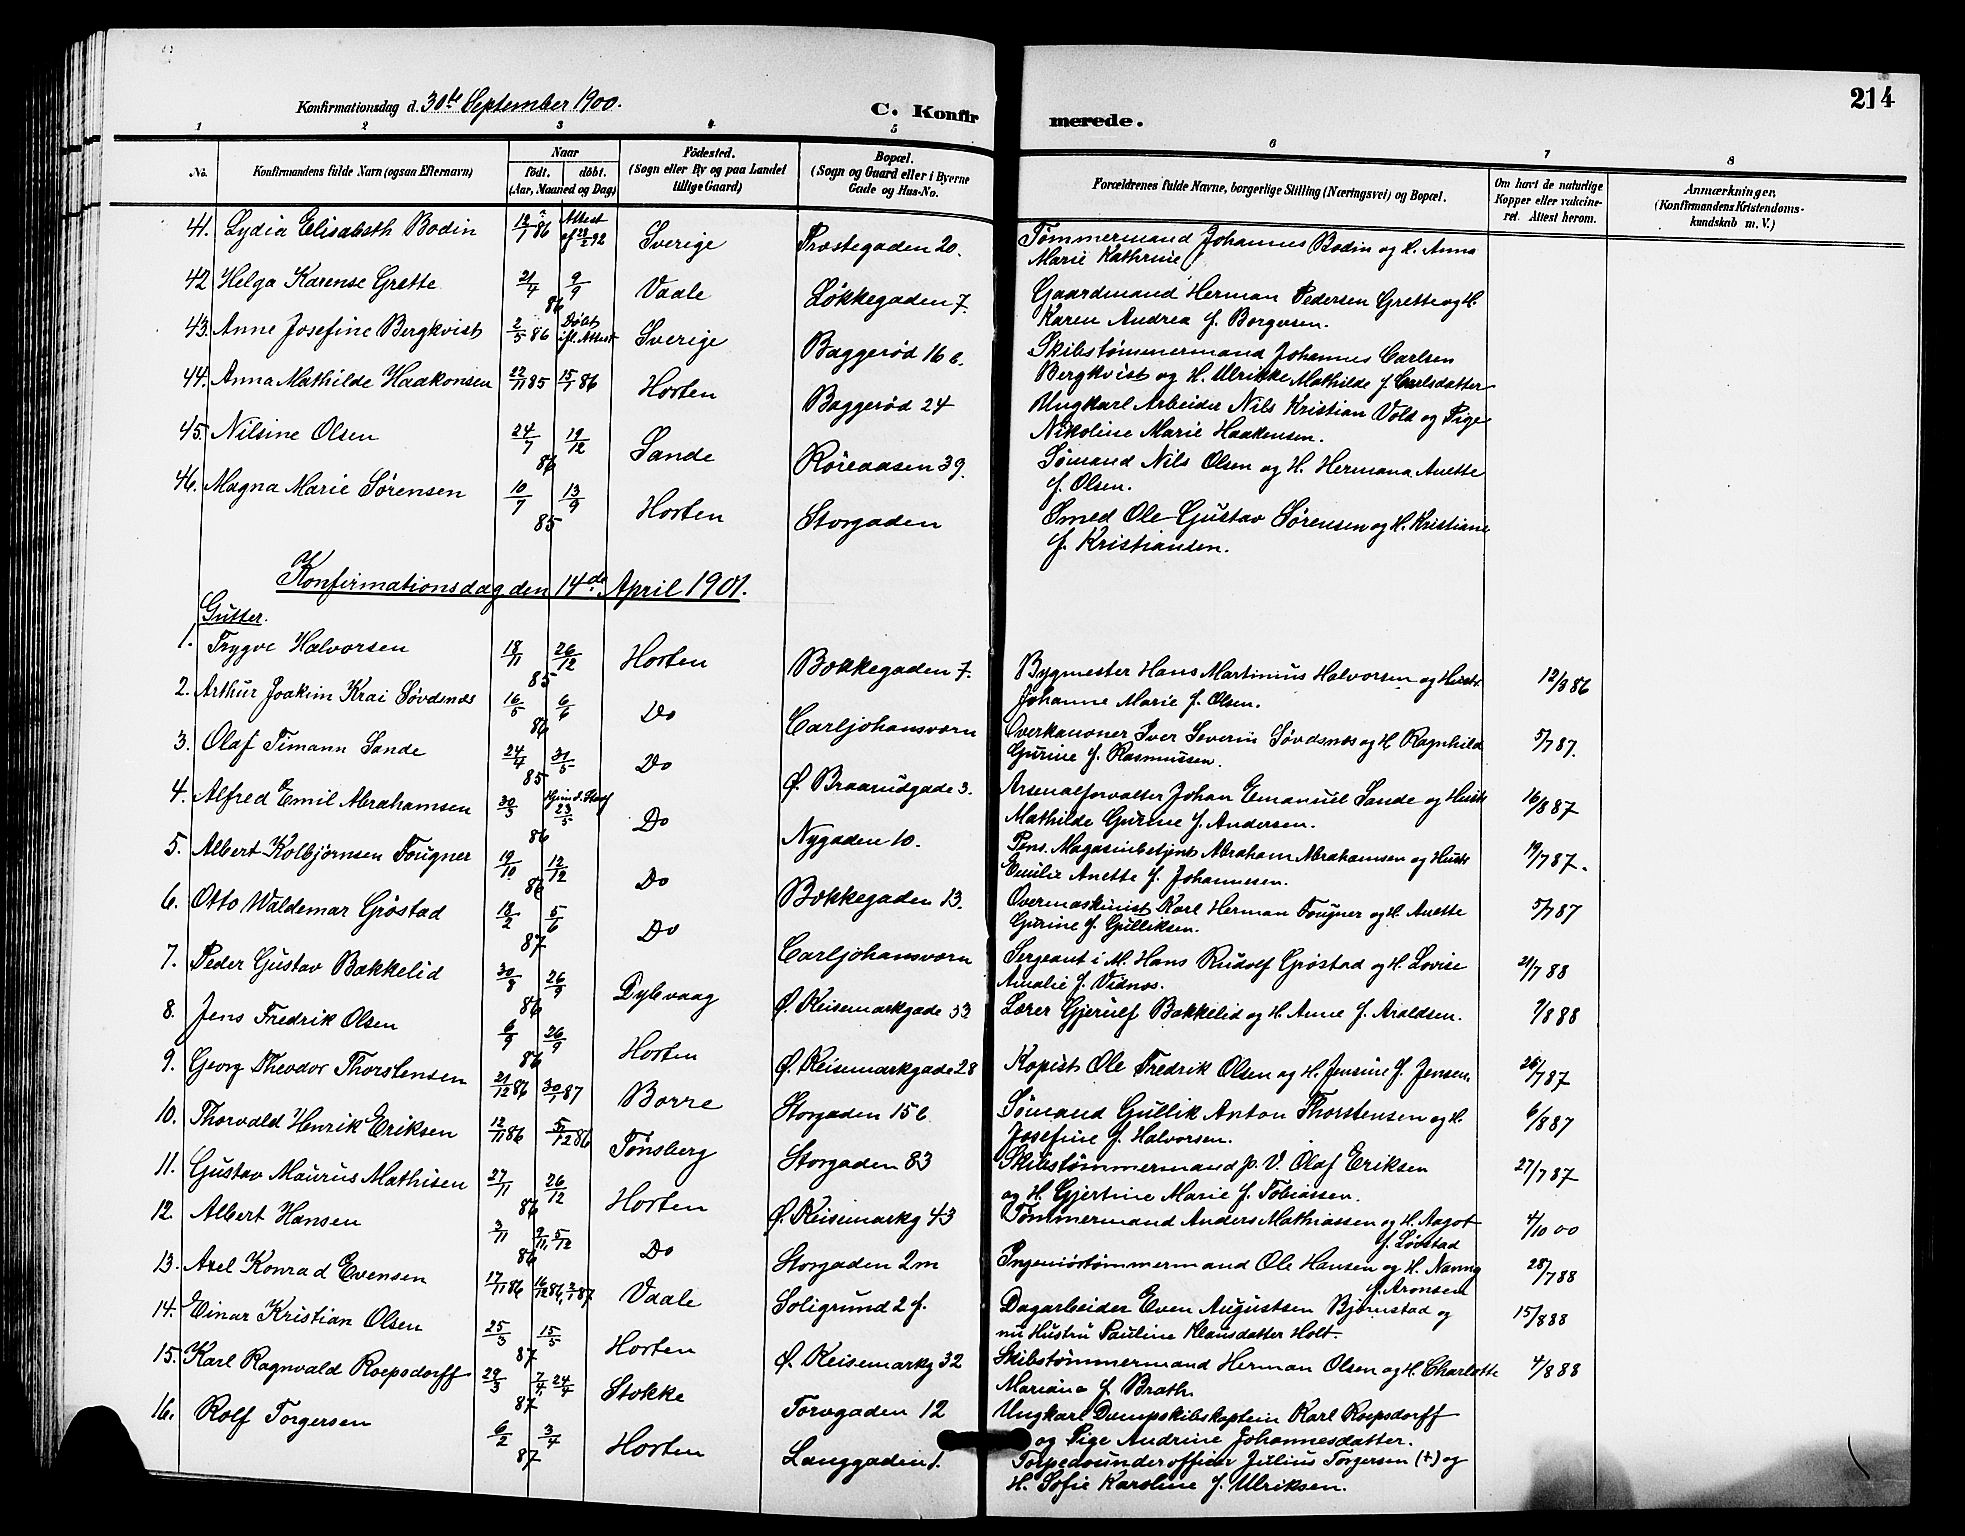 214
Konfirmationsdag d. 30te September 1900.
C. Konfirmerede.
1 2 3 4 5 6 7 8
No.
Konfirmandens fulde Navn (ogsaa Efternavn)
Naar
født. døbt.
(Aar, Maaned og Dag)
Fødested.
(Sogn eller By og paa Landet
tillige Gaard)
Bopæl.
(Sogn og Gaard eller i Byerne
Gade og Hus-No.
Forældrenes fulde Navne, borgerlige Stilling (Næringsvei) og Bopæl.
Om havt de naturlige
Kopper eller vakcine-
ret. Attest herom.
Anmærkninger,
(Konfirmandens Kristendoms-
kundskab m. V.)
41. Lydia Elisabeth Bodin 12/7 86 Attest af 28/2 92 Sverige Præstegaden 20. Tømmermand Johannes Bodin og H. Anna
Marie Kathrine
42 Helga Karense Grette 21/4 9/9 86 Vaale Løkkegaden 7. Gaardmand Herman Pedersen Grette og H.
Karen Andrea f. Borgersen.
43. Anne Josefine Bergkvist 2/5 86 Døbt ifl. Attest Sverige Baggerød 16 b. Skibstømmermand Johannes Carlsen
Bergkvist og H. Ulrikke Mathilde f. Carlsdatter
44. Anna Mathilde Haakonsen 22/11 85 15/7 86 Horten Baggerød 24 Ungkarl Arbeider Nils Kristian Vold og Pige
Nikoline Marie Haakensen.
45. Nilsine Olsen 24/7 19/12 86 Sande Røreaasen 39. Sømand Nils Olsen og H. Hermana Anette
f. Olsen.
46. Magna Marie Sørensen 10/7 13/9 85 Horten Storgaden Smed Ole Gustav Sørensen og H. Kristiane
f. Kristiansen.
Konfirmationsdag den 14de April 1901.
Gutter.
1. Trygve Halvorsen 18/11 26/12 85 Horten Bækkegaden 7. Bygmester Hans Martinius Halvorsen og Hustr 12/3 86
Johanne Marie f. Olsen.
2. Arthur Joakim Krai Søvdsnæs 16/5 6/6 86 Do Carljohansværn Overkanoner Iver Severin Søvdsnæs og H. Ragnhild 5/7 87.
Gurine f. Rasmussen.
3. Olaf Timann Sande 24/4 31/5 85 Do Ø. Braarudgade 3. Arsenalforvalter Johan Emanuel Sande og Hustr 16/8 87
Mathilde Gurine f. Andersen.
4. Alfred Emil Abrahamsen 30/3 23/5 86 Do Nygaden 10. Pens. Magasinbetjent Abraham Abrahamsen og Hustr 19/7 87.
Emilie Anette f. Johannesen.
5. Albert Kolbjørnsen Fougner 19/10 12/12 86 Do Bækkegaden 13. Overmaskinist Karl Herman Fougner og H. Anette 5/7 87
Gurine f. Gulliksen.
6. Otto Waldemar Grøstad 18/2 5/6 87 Do Carljohansværn Sergeant i M. Hans Rudolf Grøstad og H. Lovise 21/7 88
Amalie f. Vidnæs.
7. Peder Gustav Bækkelid 30/8 26/9 86 Dybvaag Ø. Keisemarkgade 33 Lærer Gjerulf Bækkelid og H. Anne f. Araldsen. 7/8 88
8. Jens Fredrik Olsen 6/9 26/9 86 Horten Ø. Keisemarkgade 28 Kopist Ole Fredrik Olsen og H. Jensine f. Jensen. 26/7 87
9. Georg Theodor Thorstensen 21/12 86 30/1 87 Borre Storgaden 15 b Sømand Gullik Anton Thorstensen og H. 6/8 87
Josefine f. Halvorsen.
10. Thorvald Henrik Eriksen 12/11 86 5/12 86 Tønsberg Storgaden 83 Skibstømmermand p. V. Olaf Eriksen 27/7 87
og H. Gjertine Marie f. Tobiassen.
11. Gustav Maurus Mathisen 27/11 26/12 86 Horten Ø. Keisemarkg 43 Tømmermand Anders Mathiassen og H. Aagot 4/10 00
f. Løvstad
12. Albert Hansen 3/11 9/11, 5/12 86 Do Storgaden 2 m Ingeniørtømmermand Ole Hansen og H. Nanna 28/7 88
f. Aronsen
13. Axel Konrad Evensen 17/11 86 16/12 86, 2/1 87 Vaale Soligrund 2 f. Dagarbeider Even Augustsen Bjørnstad og 15/8 88
nu Hustru Pauline Klausdatter Holt.
14. Einar Kristian Olsen 25/3 15/5 87 Horten Ø. Keisemarkg 32 Skibstømmermand Herman Olsen og H. Charlotte 4/8 88
Mariane f. Bråth.
15. Karl Ragnvald Roepsdorff 29/3 7/4, 24/4 87 Stokke Torvgaden 12 Ungkarl Dampskibskaptein Karl Roepsdorff
og Pige Andrine Johannesdatter.
16. Rolf Torgersen 6/2 3/4 87 Horten Langgaden 1. Torpedounderofficer Julius Torgersen (+) og
H. Sofie Karoline f. Ulriksen.